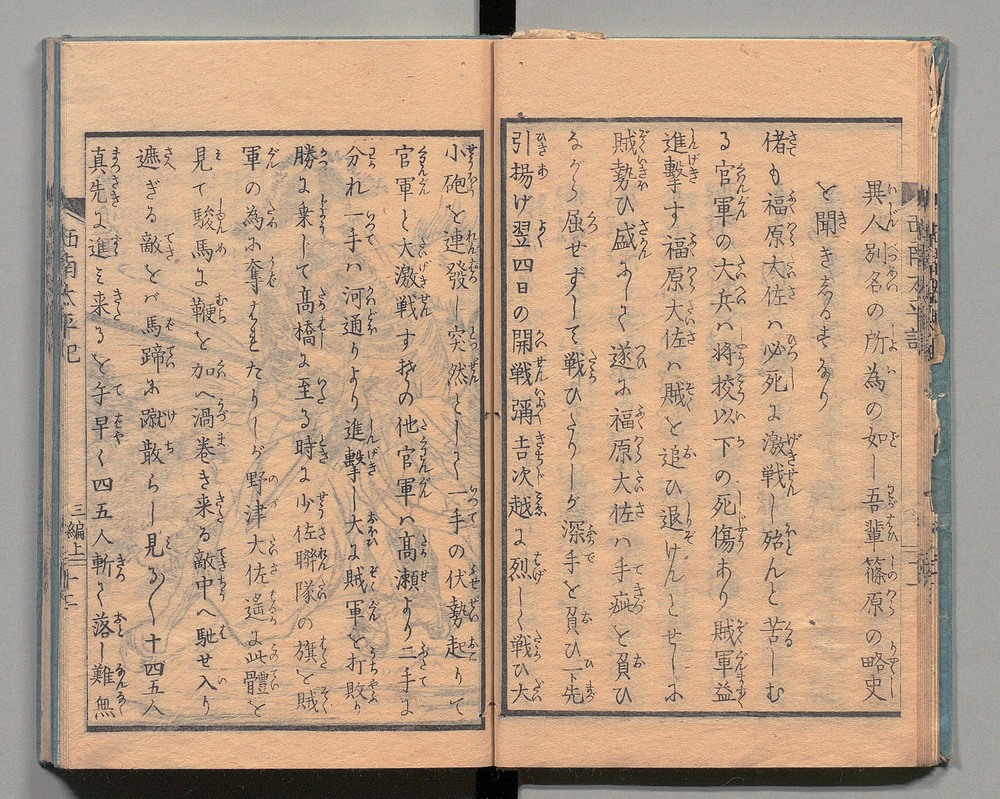 異人別名の所為の如し吾輩篠原の略史
を聞きしるすなり
偖も福原大佐ハ必死に激戦し殆んと苦しむ
る官軍の大兵ハ将校以下の死傷あり賊軍益
進撃す福原大佐ハ賊を追ひ退けんとせしに
賊勢ひ盛にして遂に福原大佐ハ手疵を負ひ
ながら屈せずして戦ひたりしが深手を負ひ一ト先
引揚げ翌四日の開戦彌吉次越に烈しく戦ひ大
小砲を連發し突然として一手の伏勢起りて
官軍と大激戦す其の他官軍ハ髙瀬より二手に
分れ一手ハ河通りより進撃し大に賊軍を打敗り
勝に乗じて髙橋に至る時に少佐聯隊の旗を賊
軍の為に奪はれたりしが野津大佐遙に此體を
見て駿馬に鞭を加へ渦巻き来る敵中へ馳せ入り
遮ぎる敵をバ馬蹄に蹴散らし見る〳〵十四五人
真先に進ミ来るを手早く四五人斬て落し難無
西南太平記
三編上
十二